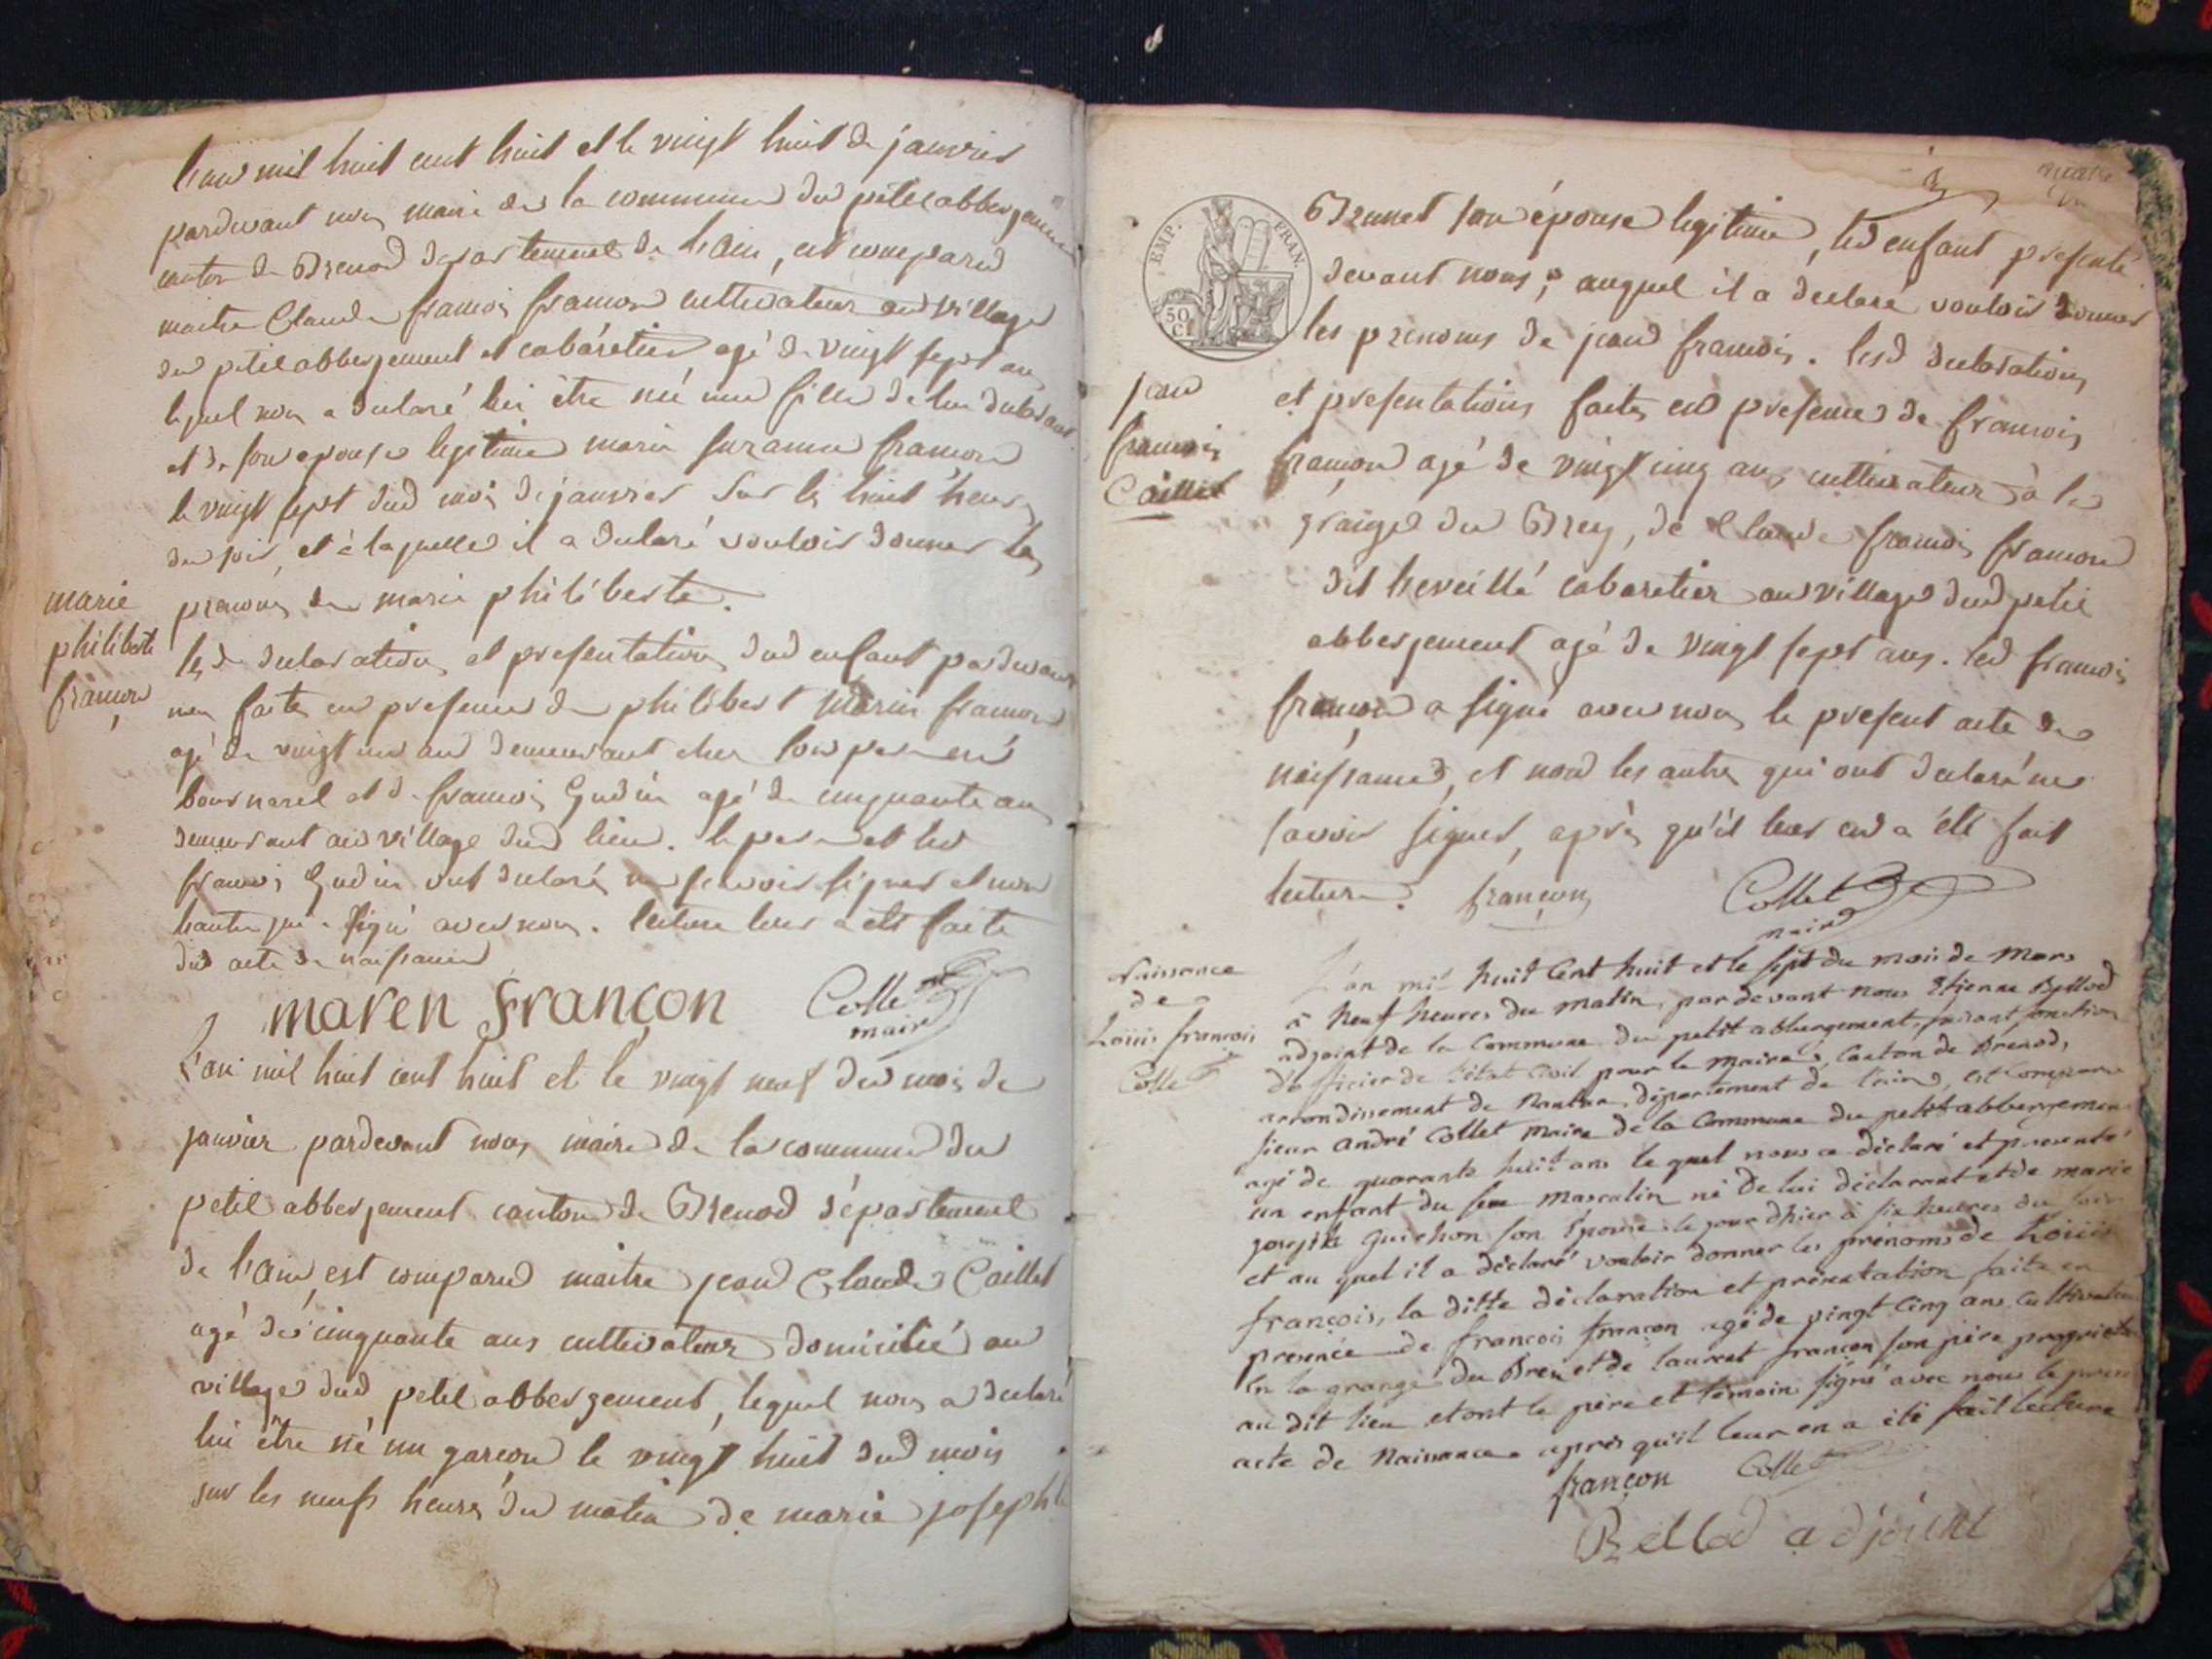 l'an mil huit cent huit et le vingt huit de janvier
pardevant nous maire de la commune du petit abbergement
canton de Brenod departement de l'ain, est comparu
maitre Claude francois françon cultivateur au village
du petit abbergement et cabaretier agé de vingt sept ans
lequel nous a declaré lui être né une fille de lui declarant
et de son epouse legitime marie suzanne françon
le vingt sept dud mois de janvier sur les huit heures
du soir, et à laquelle il a declaré vouloir donner les
prenoms de marie philiberte.
marie
philiberte
françon
lesd declaration et presentation dud enfant pardevant
nous faites en presence de philibert marin françon
agé de vingt un ans demeurant chez son pere en
bournarel et de francois Gudin agé de cinquante ans
demeurant au village dud lieu. le pere et led
francois Gudin ont declaré ne scavoir signer et non
l'autre qui a signé avec nous. lecture leur a été faite
dud acte de naissance
maren françon Collet
maire
L'an mil huit cent huit et le vingt neuf du mois de
janvier pardevant nous maire de la commune du
petit abbergement canton de Brenod département
de l'ain, est comparu maitre jean Claude Caillet
agé de cinquante ans cultivateur domicilié au
village dud petit abbergement, lequel nous a declaré
lui être né un garcon le vingt huit dud mois
sur les neufs heures du matin de marie josephte
3
EMP. FRAN.
50
C
Brunet son épouse legitime, led enfant presenté
devant nous; auquel il a declaré vouloir donner
les prenoms de jean francois. lesd declarations
jean
francois
Caillet
et presentations faites en presence de francois
françon agé de vingt cinq ans cultivateur à la
grange du Brey, de Claude francois françon
dit l'eveillé cabaretier au village dud petit
abbergement agé de vingt sept ans. led francois
françon a signé avec nous le present acte de
naissance, et non les autres qui ont declaré ne
savoir signer, après qu'il leur en a été fait
lecture. françon Collet
maire
Naissance
de
Louis françois
Collet
L'an mil huit Cent huit et le sept du mois de Mars
à neuf heures du matin, pardevant nous Etienne Bellod
adjoint de la Commune du petit abbergement, faisant fonction
d'officier de l'état Civil pour le maire, Canton de Brenod,
arrondissement de Nantua, département de l'ain, est Comparu
sieur andré Collet maire de la Commune du petit abbergement
agé de quarante huit ans le quel nous a déclaré et presenté
un enfant du sexe masculin né de lui déclarant et de marie
josephte Guichon son Epouse le jour d'hier à six heures du soir
et au quel il a déclaré vouloir donner les prénoms de Louis
françois, la ditte déclaration et présentation faite en
presence de francois françon agé de vingt Cinq ans Cultivateur
en la grange du Brey et de laurent françon son père propriétaire
au dit lieu et ont le père et temoins signé avec nous le present
acte de Naissance après qu'il leur en a été fait lecture
françon Collet
Bellod adjoint